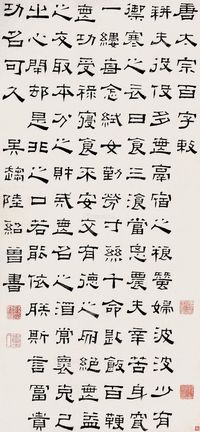 唐太宗百字敎
耕夫役役多無隔宿之糧蠶婦波波少有
禦寒之衣日食三飡當思農夫辛苦身穿
一縷每念織女勤勞寸絲千命匙飯百鞭
無功受祿寢食不安交有德之朋絕無益
之友取本分之財戒無名之酒常懷克己
之心閉卻是非之口若能依朕斯言富貴
功名可久 吳趨陸紹曾書